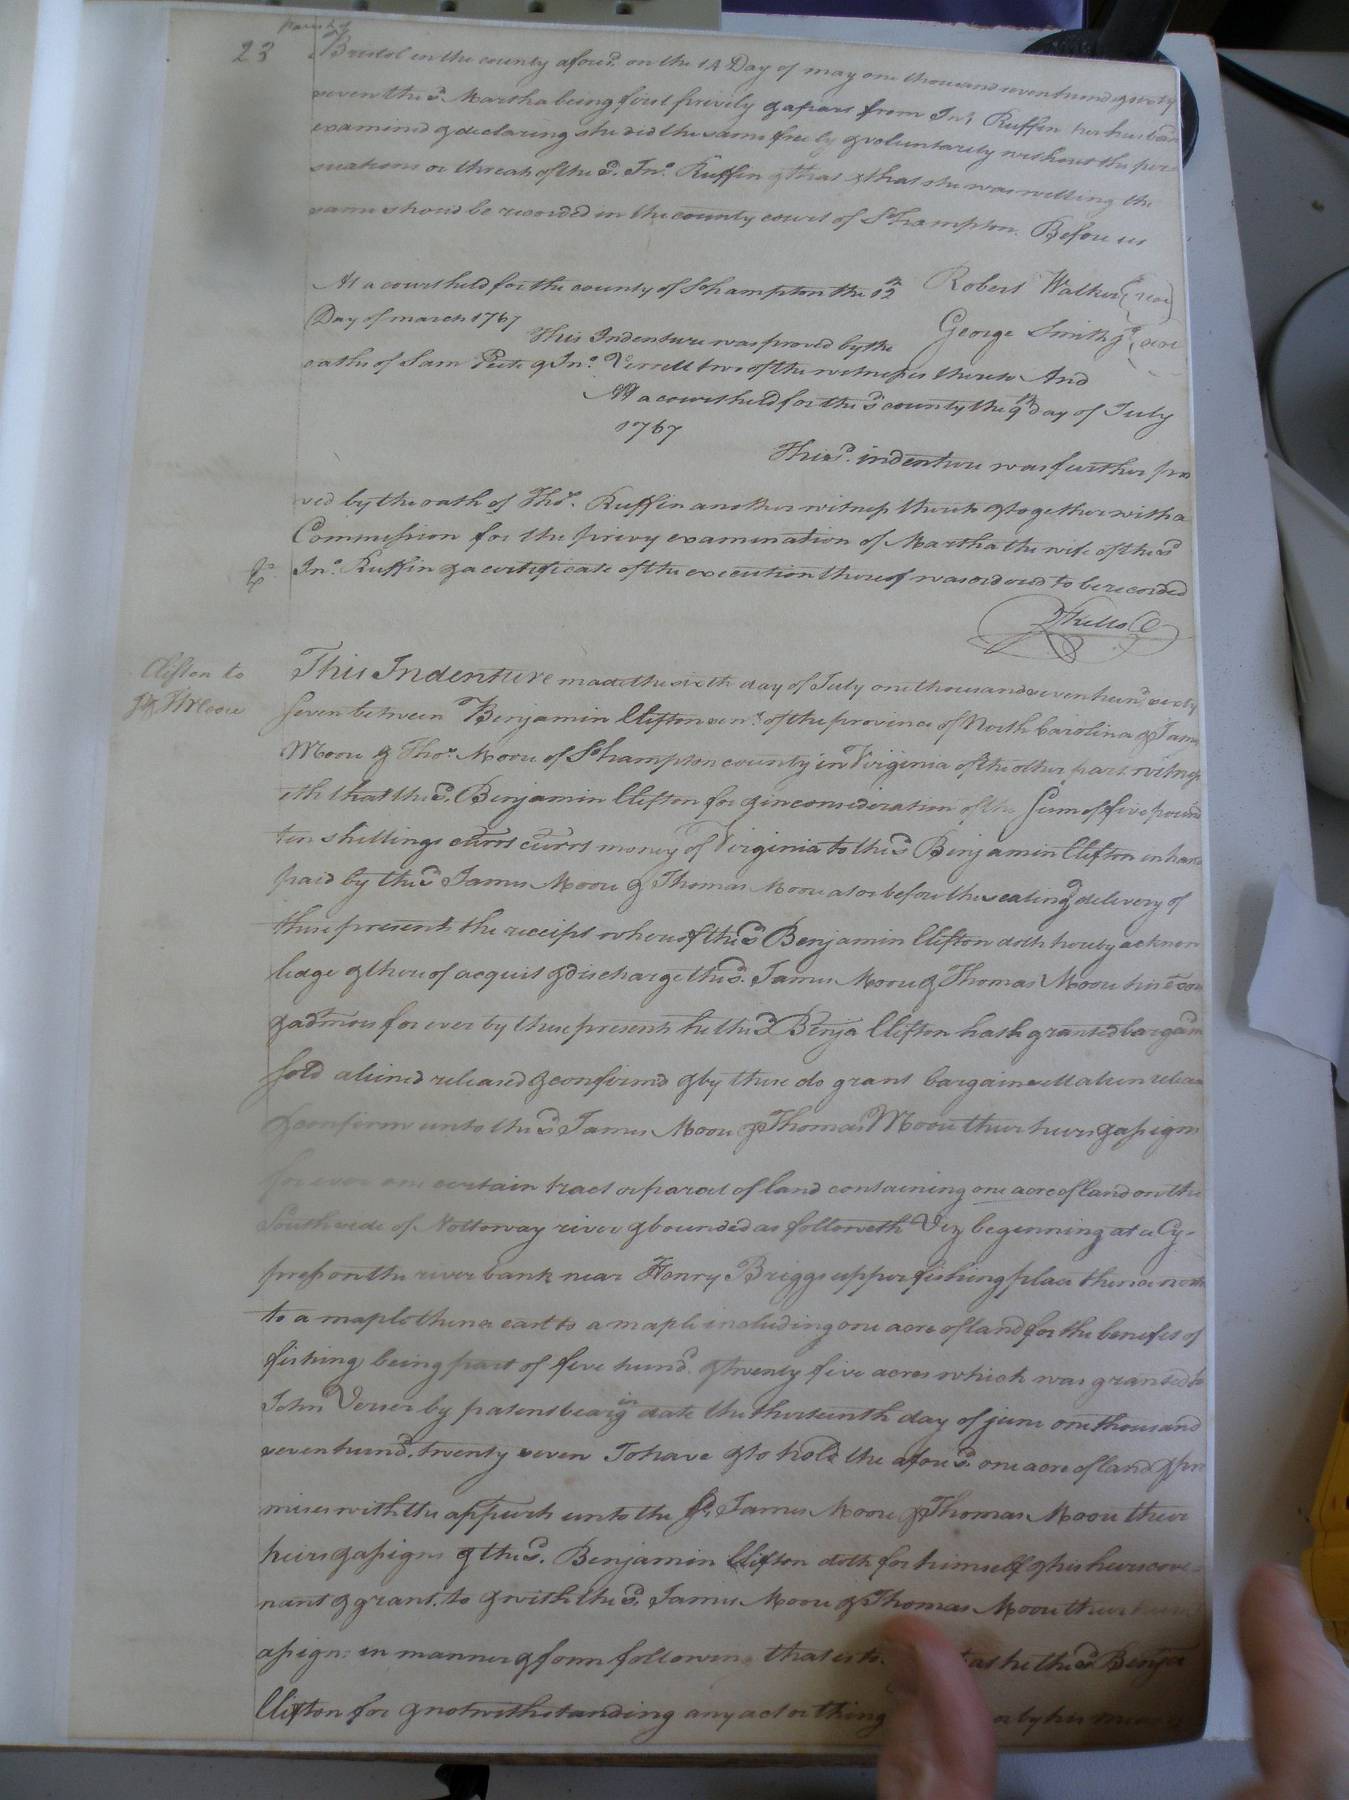 23
parish of
Bristol in the county afores.d on the 14 Day of may one thousand seven hund & sixty
seven the s.d Martha being first privily & apart from Jn.o Ruffin her husban
examined & declaring she did the same freely & voluntarily without the per
suations or threats of the s.d Jn.o Ruffin & that & that she was willing the
same shoud be recorded in the county court of S.hampton. Before us
Robert Walker
At a court held for the county of S.hampton the 12th
George Smith Jr
Day of march 1767
This Indenture was proved by the
oaths of Sam Peete & Jn.o Verrell two of the witnesses thereto And
At a court held for the s.d county the 9th day of July
1767
This s.d indenture was further pro
ved by the oath of Tho.s Ruffin another witness thereto & together with a
Commission for the privy examination of Martha the wife of the s.d
Jn.o Ruffin & a certificate of the execution thereof was ordered to be recorded
Kello C
Clifton to
J & T Moore
This Indenture made the sixth day of July one thousand seven hund sixty
seven between Benjamin Clifton sen.r of the province of North Carolina & James
Moore & Tho.s Moore of S.hampton county in Virginia of the other part witness
eth that the s.d Benjamin Clifton for & in consideration of the Sum of five pound
ten shillings currt money of Virginia to the s.d Benjamin Clifton in hand
paid by the s.d James Moore & Thomas Moore at or before the sealing & delivery of
these presents the receipt whereof the s.d Benjamin Clifton doth hereby acknow
ledge & thereof acquit & discharge the s.d James Moore & Thomas Moore
& admors for ever by these presents he the s.d Benja Clifton hath granted bargaind
sold aliened released & confirmd & by these do grant bargain sell alien release
& confirm unto the s.d James Moore & Thomas Moore their heirs & assigns
for ever one certain tract or parcel of land containing one acre of land on the
South side of Nottoway river & bounded as followeth Viz beginning at a Cy-
press on the river bank near Henry Briggs upper fishing place thence north
to a maple thence east to a maple including one acre of land for the benefit of
fishing being part of five hund.d & twenty five acres which was granted to
John Verser by patent bearing date the thirteenth day of june one thousand
seven hund.d twenty seven To have & to hold the afores.d one acre of land & pre
mises with the appurts unto the s.d James Moore & Thomas Moore their
heirs & assigns & the s.d Benjamin Clifton doth for himself & his heirs cove-
nant & grant to & with the s.d James Moore & Thomas Moore their heirs
assigns in manner & form following that is to as he the s.d Benja
Clifton for & notwithstanding any act or thing or by his means